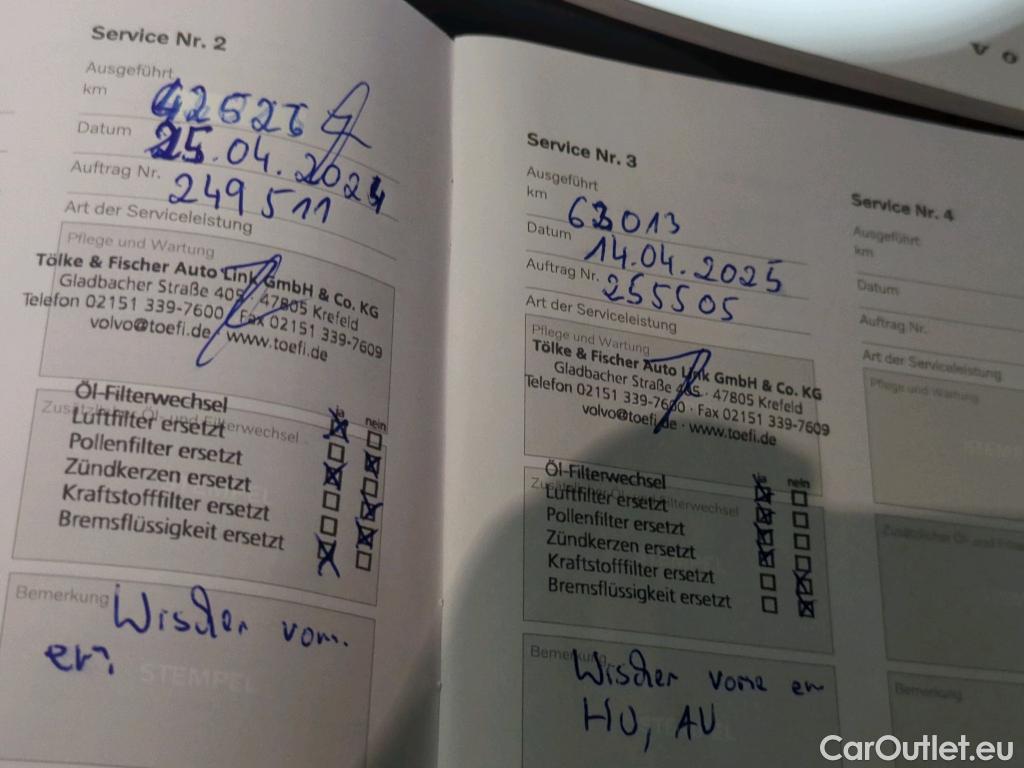 V O
Service Nr. 2
Ausgeführt
km 42626
Datum 25.04.2024
Auftrag Nr. 249511
Art der Serviceleistung
Pflege und Wartung
Tölke & Fischer Auto Link GmbH & Co. KG
Gladbacher Straße 405 · 47805 Krefeld
Telefon 02151 339-7600 · Fax 02151 339-7609
volvo@toefi.de · www.toefi.de
ja nein
Öl-Filterwechsel
Zusätzlicher Öl- und Filterwechsel
Luftfilter ersetzt
Pollenfilter ersetzt
Zündkerzen ersetzt
Kraftstofffilter ersetzt
Bremsflüssigkeit ersetzt
STEMPEL
Bemerkung Wischer vorn.
ern
STEMPEL
Service Nr. 3
Ausgeführt
km 63013
Datum 14.04.2025
Auftrag Nr. 255505
Art der Serviceleistung
Pflege und Wartung
Tölke & Fischer Auto Link GmbH & Co. KG
Gladbacher Straße 405 · 47805 Krefeld
Telefon 02151 339-7600 · Fax 02151 339-7609
volvo@toefi.de · www.toefi.de
ja nein
Öl-Filterwechsel
Zusätzlicher Öl- und Filterwechsel
Luftfilter ersetzt
Pollenfilter ersetzt
Zündkerzen ersetzt
Kraftstofffilter ersetzt
Bremsflüssigkeit ersetzt
Bemerkung
Wischer vorne er
HU, AU
Service Nr. 4
Ausgeführt
km
Datum
Auftrag Nr.
Art der Serviceleistung
Pflege und Wartung
Zusätzlicher Öl- und Filter
Bemerkung
CarOutlet.eu